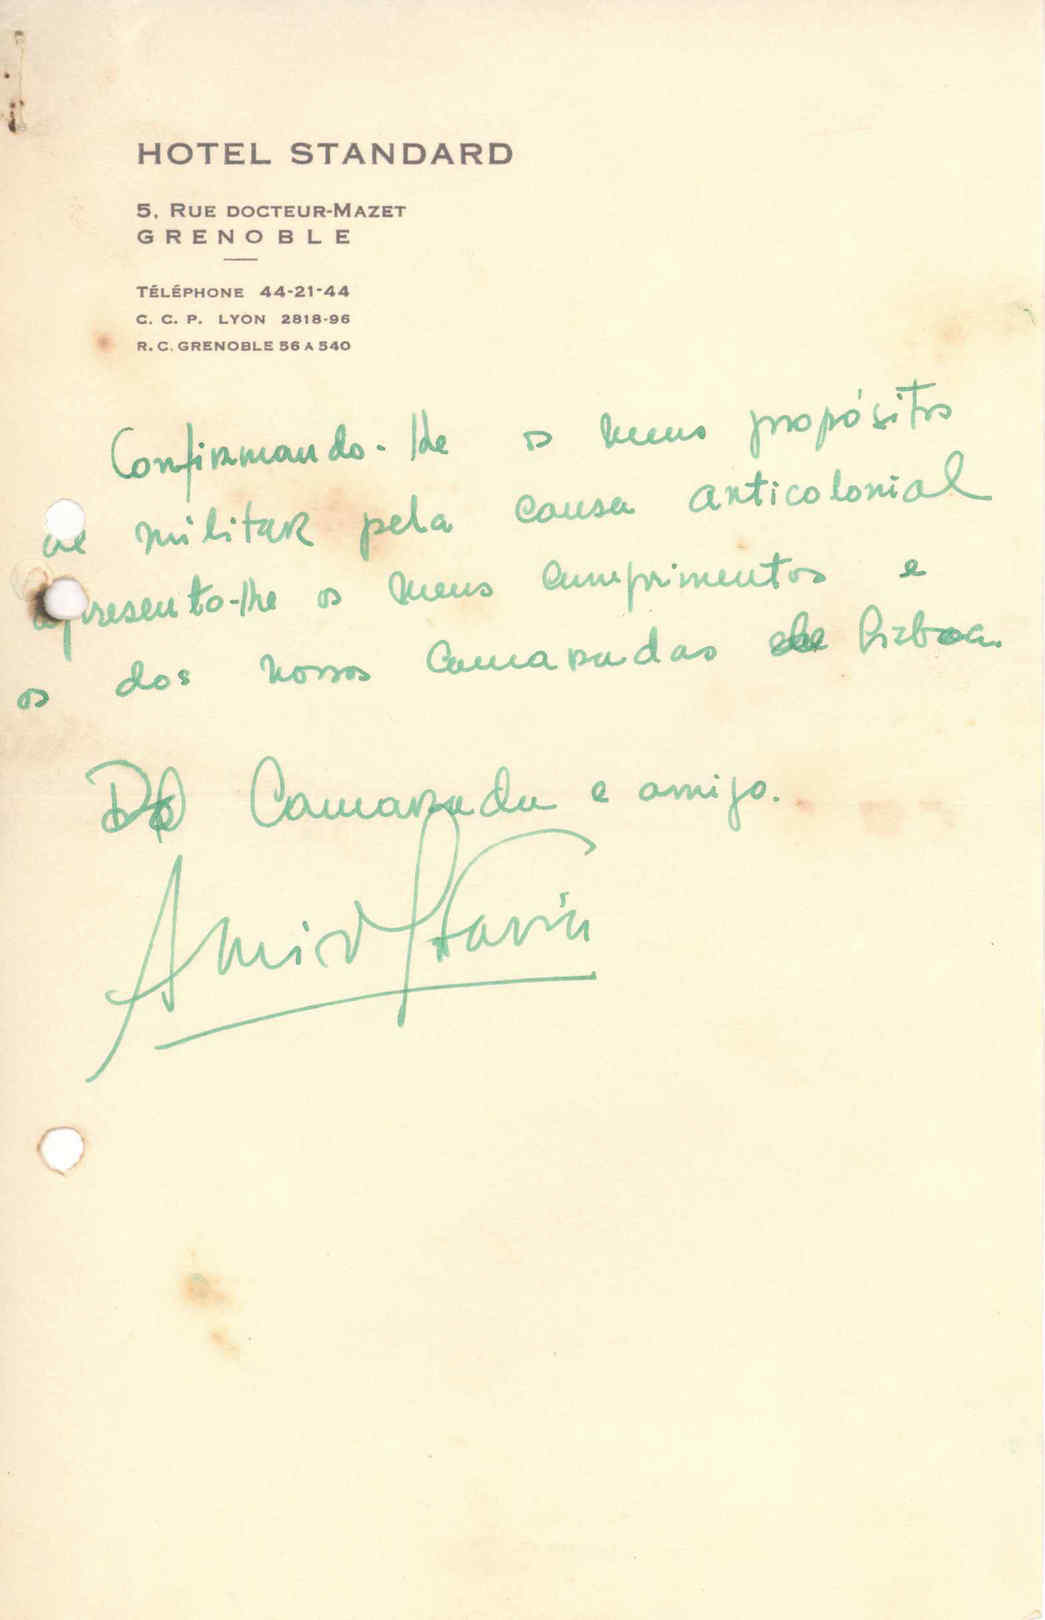 HOTEL STANDARD
5, RUE DOCTEUR-MAZET
GRENOBLE
TÉLÉPHONE 44-21-44
C. C. P. LYON 2818-96
R. C. GRENOBLE 56 A 540
Confirmando-lhe os meus propósitos
de militar pela causa anticolonial
apresento-lhe os meus cumprimentos e
os dos nossos camaradas de Lisboa.
Do Camarada e amigo.